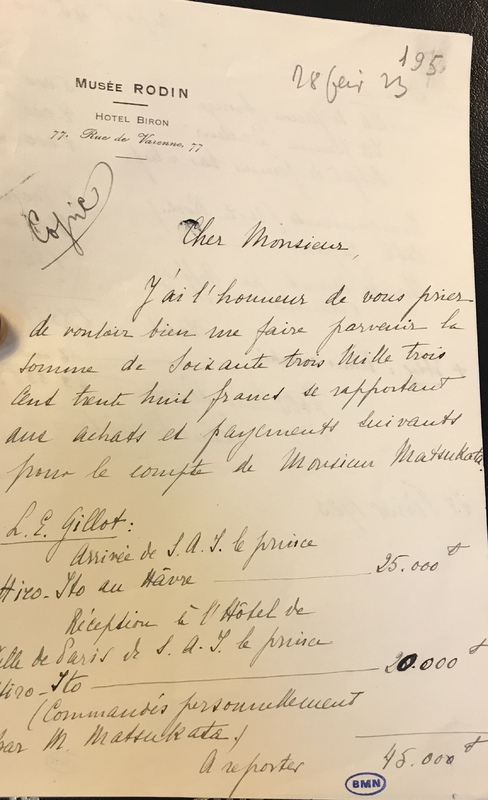 195
28 fév 23
MUSÉE RODIN
HOTEL BIRON
77, Rue de Varenne, 77
Copie
Cher Monsieur,
J'ai l'honneur de vous prier
de vouloir bien me faire parvenir la
somme de soixante trois mille trois
cent trente huit francs se rapportant
aux achats et payements suivants
pour le compte de Monsieur Matsukata.
L. E. Gillot:
Arrivée de S. A. I. le prince
Hiro-Ito au Hâvre 25.000 f
Réception à l'Hôtel de
ville de Paris de S. A. I. le prince
Hiro-Ito 20.000 f
(Commandés personnellement
par M. Matsukata.)
A reporter 45.000 f
BMN